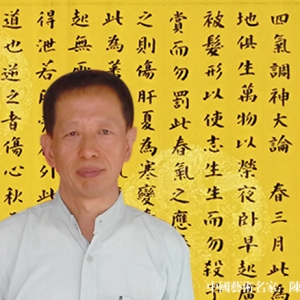 四氣調神大論 春三月此
地俱生萬物以榮夜臥早起廣
被髮形以使志生生而勿殺
賞而勿罰此春氣之應
之則傷肝夏為寒變
此為
起無
得泄若所 外此
道也逆之者傷心秋
中國藝術名家 陳